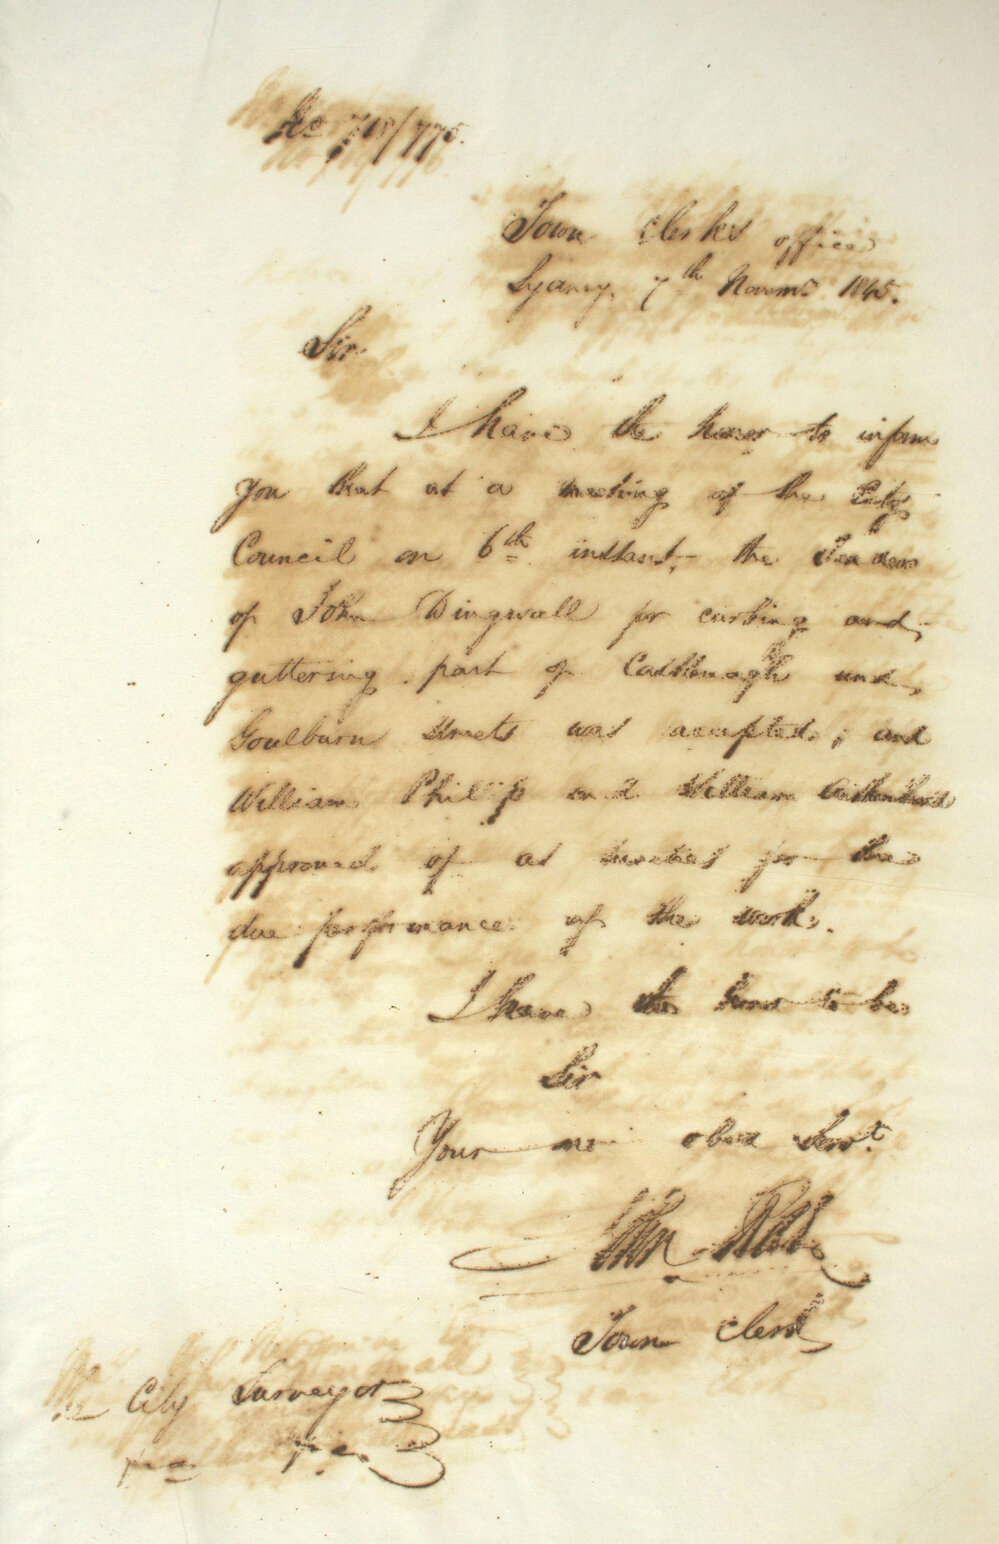 No 718/775.
Town Clerks office
Sydney, 7th Novemr. 1845.
Sir
I have the honor to inform
you that at a meeting of the City
Council on 6th instant, the Tender
of John Dingwall for curbing and
guttering part of Castlereagh and
Goulburn Streets was accepted, and
William Philip and William
approved of as sureties for the
due performance of the work.
I have the honor to be
Sir
Your mo obed Servt.
John
Town Clerk
The City Surveyor